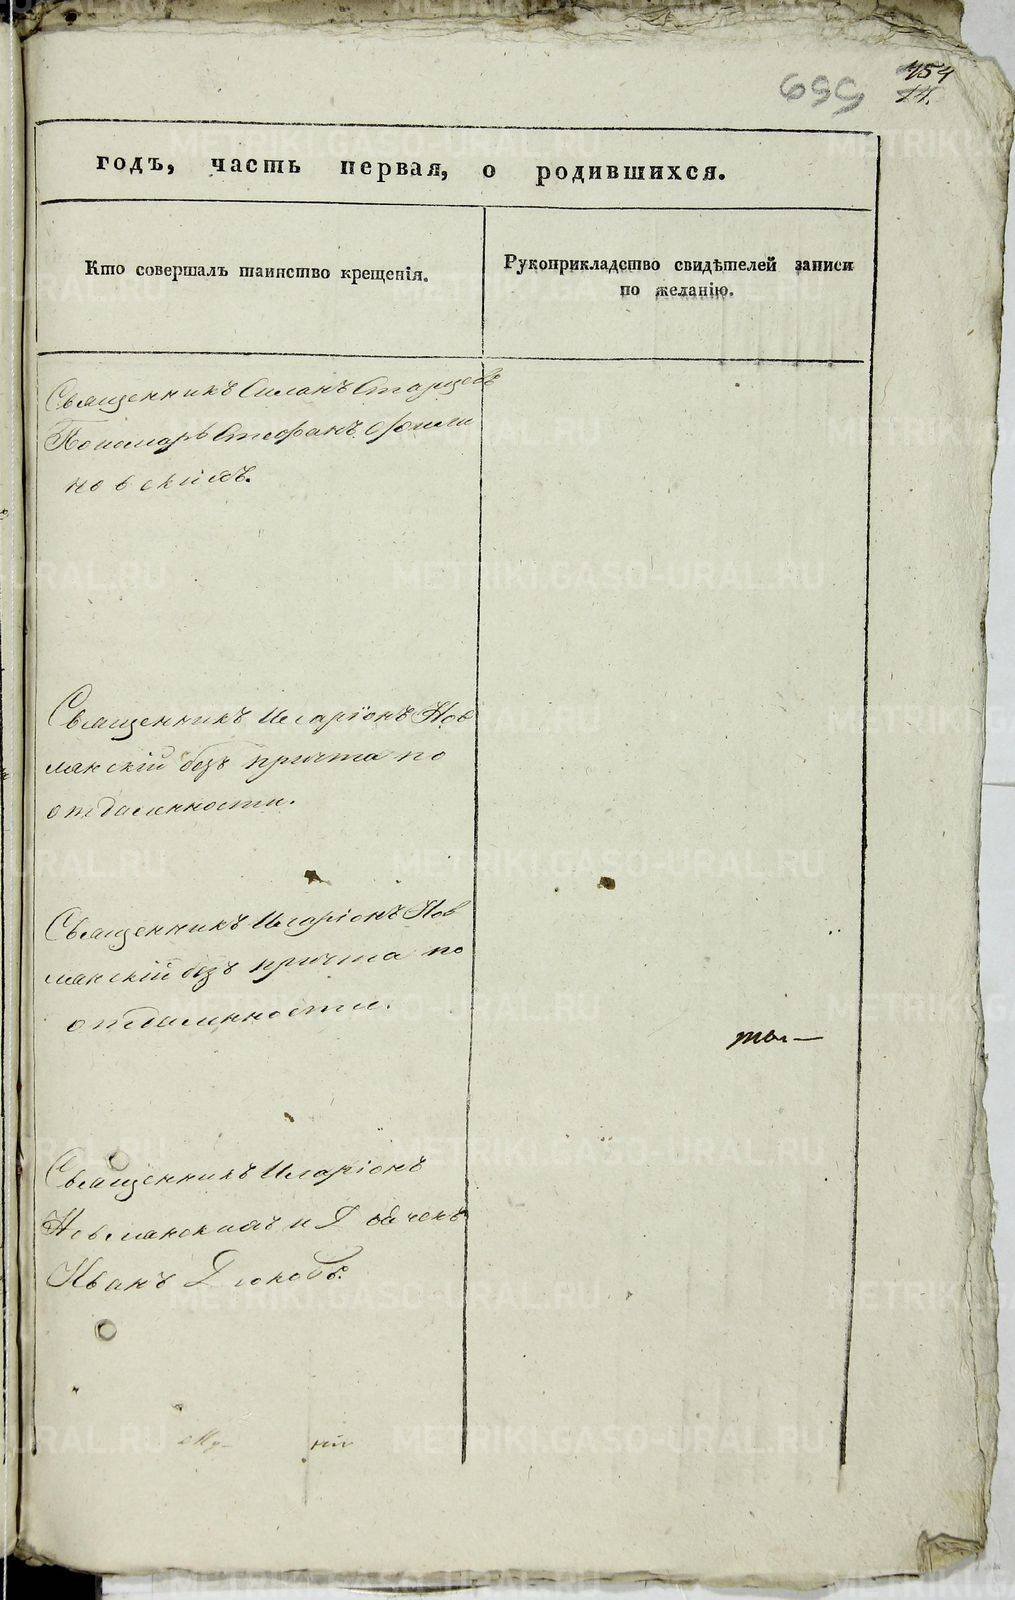 659
454
14.
годъ, часть первая, о родившихся.
Кто совершалъ таинство крещенія.
Рукоприкладство свидѣтелей записи
по желанію.
Священникъ Силанъ Старцевъ
Пономарь Стефанъ
новскій
Священникъ Иларіонъ Нов
лянскій безъ причта по
отдаленности.
Священникъ Иларіонъ Нов
лянскій безъ причта по
отдаленности.
Священникъ Иларіонъ
Новлянскій и Дьячекъ
Иванъ
METRIKI.GASO-URAL.RU